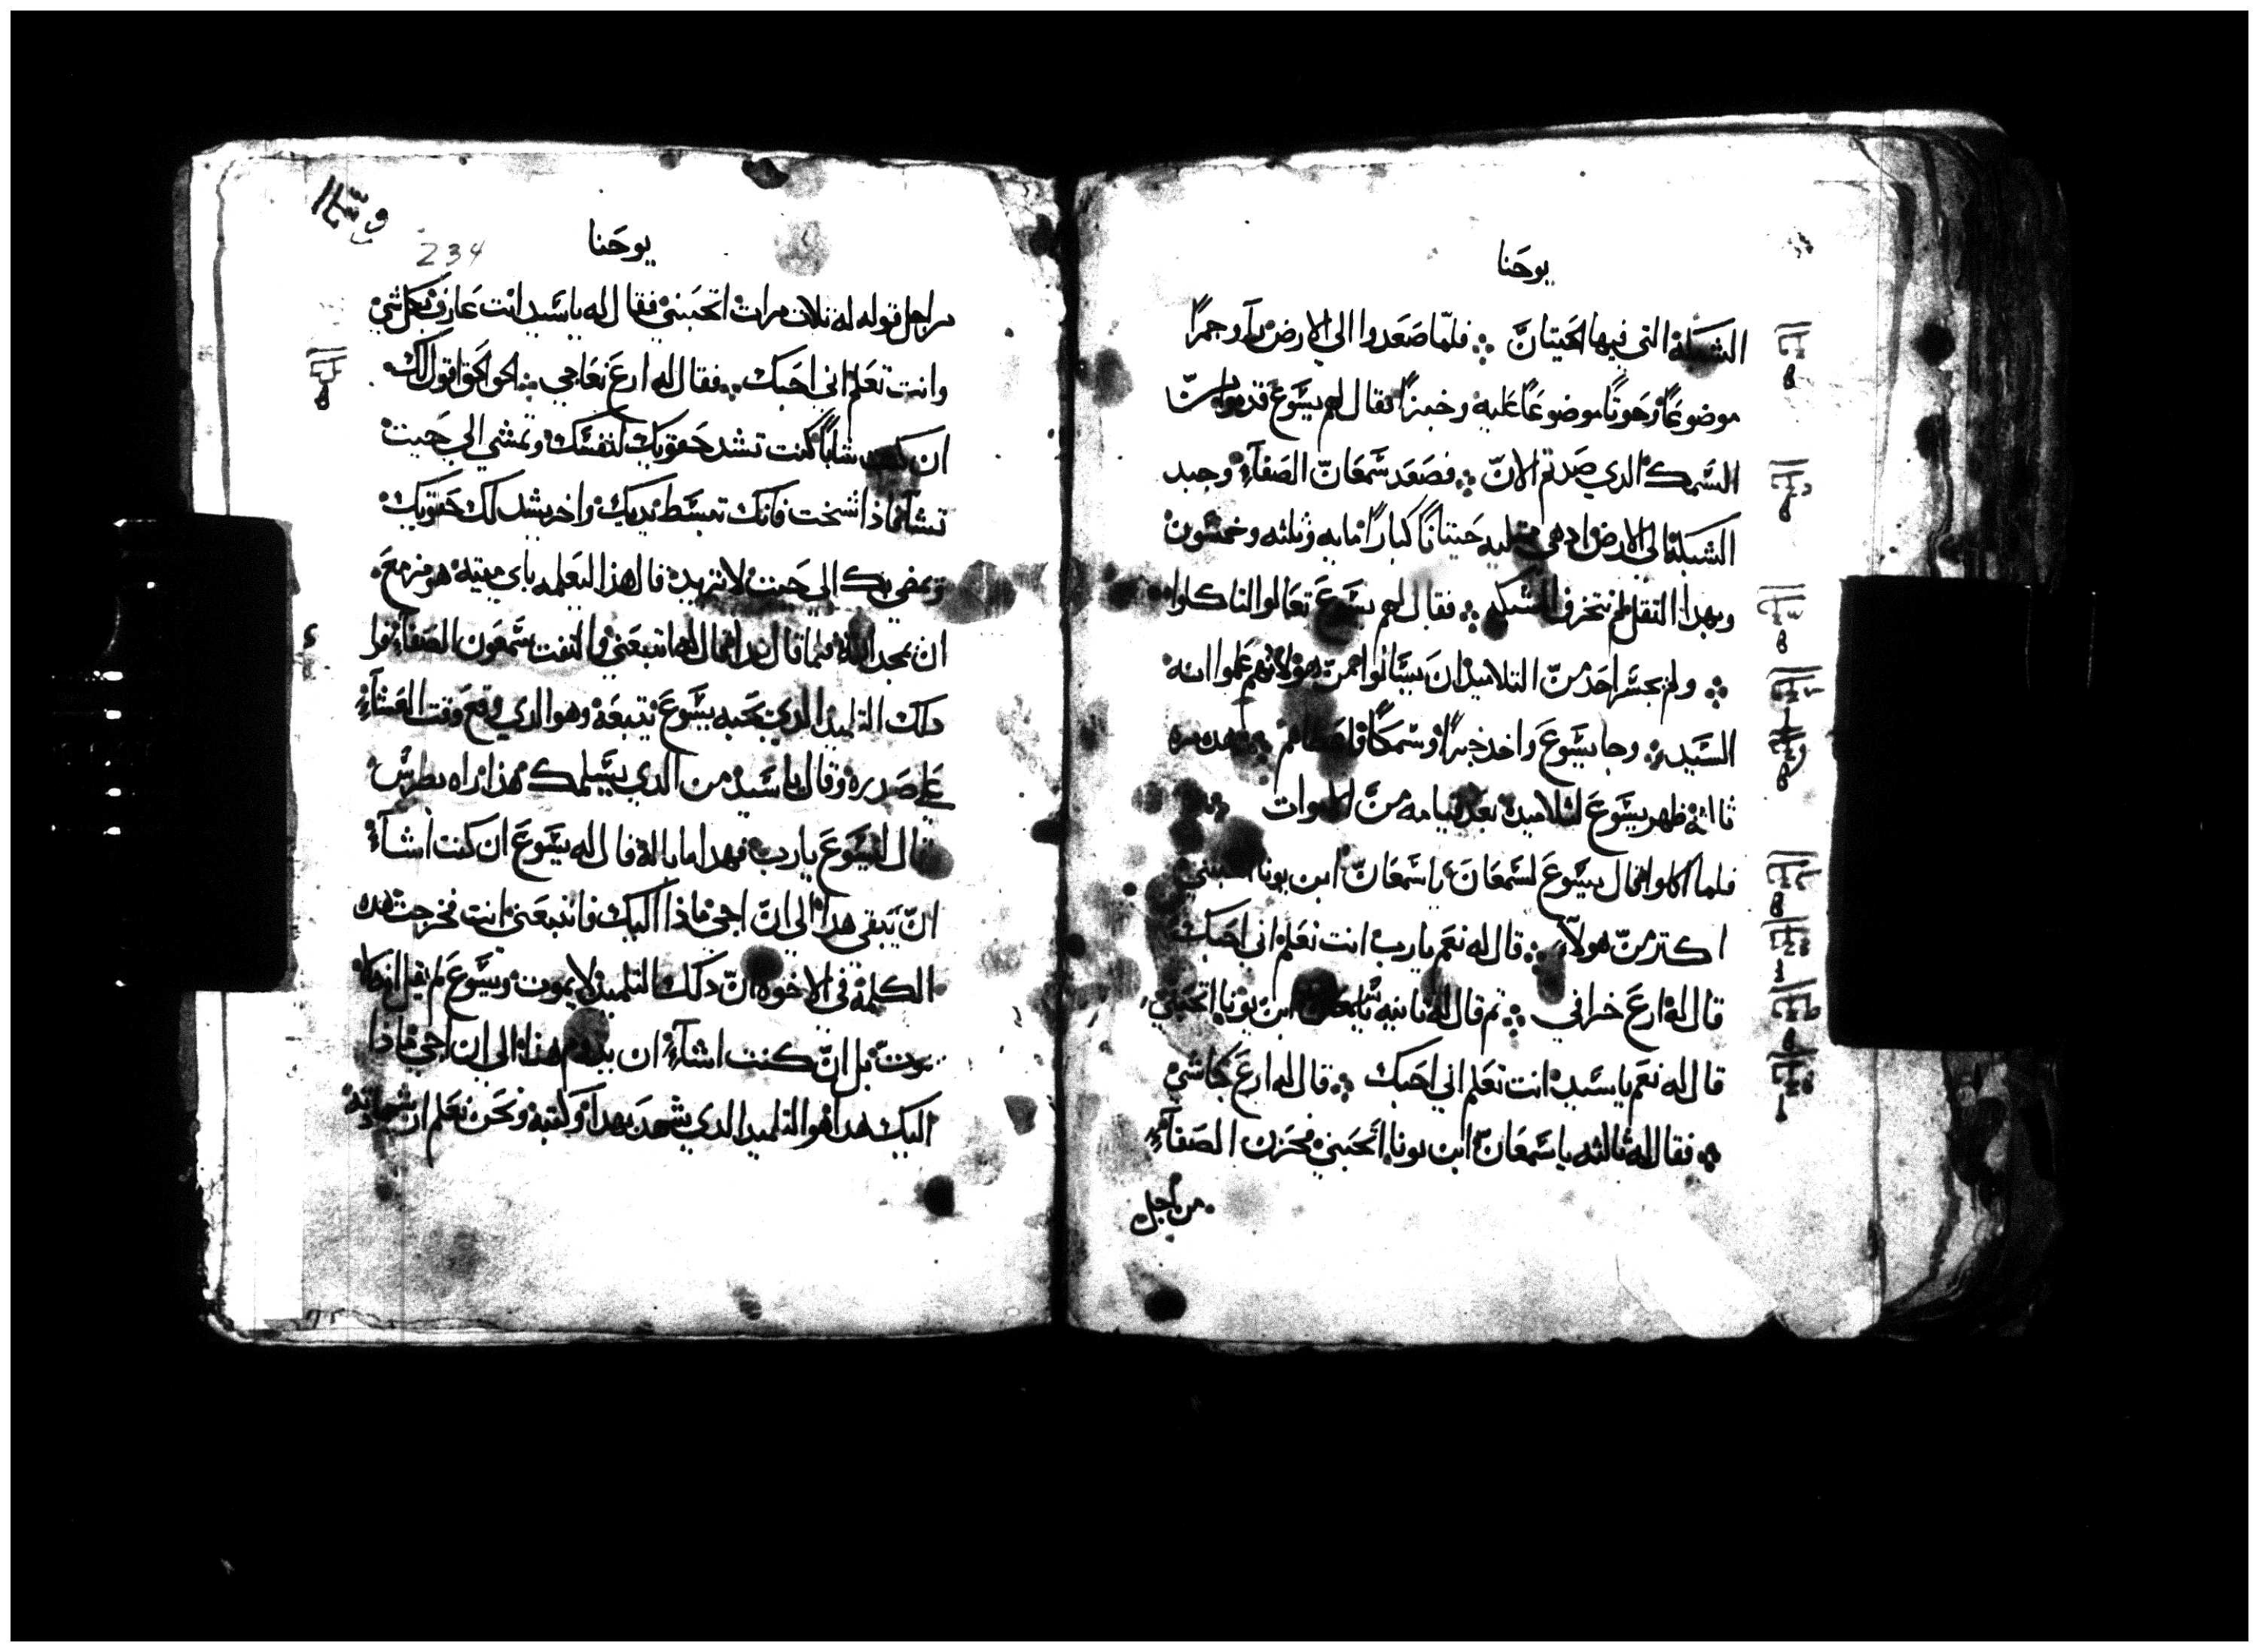 يوحنا
الشبكة التي فيها الحيتان ܀ فلما صعدوا الي الارض راو جمرًا
موضوعًا وحوتًا موضوعًا عليه وخبزًا فقال لهم يسوع قدموا من
السمك الدي صدتم الان ܀ فصعد شمعان الصفا وجبد
الشبكة الي الارض اد هي ممتليه حيتانًا كبارًا مايه وثلثه وخمسون
وبهدا الثقل لم تتخرق الشبكه ܀ فقال لهم يسوع تعالوا لناكلوا
܀ ولم يجسر احد من التلاميد ان يسالوا من هو لانهم علموا انه
السيد ܀ وجا يسوع واخد خبزًا وسمكًا واعطاهم ܀ هده مره
ثالثة ظهر يسوع لتلاميده بعد قيامه من الاموات ܀
فلما اكلوا قال يسوع لسمعان ياسمعان ابن يونا اتحبني
اكتر من هولآء ܀ قال له نعم يارب انت تعلم اني احبك
قال له ارع خرافي ܀ تم قال له تانيه ياسمعان ابن يونا اتحبني
قال له نعم ياسيد انت تعلم اني احبك ܀ قال له ارع كباشي
܀ فقال له ثالثه ياسمعان ابن يونا اتحبني فحزن الصفآء
من اجل
234
يوحنا
من اجل قوله له تلات مرات اتحبني فقال له ياسيد انت عارف بكل شي
وانت تعلم اني احبك ܀ فقال له ارع نعاجي ܀ الحق الحق اقول لك
ان كنت شابًا كنت تشد حقويك لنفسك وتمشي الي حيت
تشآ فاذا شخت فانك تبسط يديك واخر يشد لك حقويك
وتمضي بك الي حيت لا تريد قال هذا ليعلمه باي ميتة هو مزمع
ان يمجد الله فلما قال هدا قال له اتبعني والتفت شمعون الصفا فرا
دلك التلميد الدي يحبه يسوع يتبعه وهو الدي وقع وقت العشآء
على صدره وقال ياسيد من الدي يسلمك هذا راه بطرس
قال ليسوع يارب فهدا ما باله قال له يسوع ان كنت اشآء
ان يبقى هدا الي ان اجي ماذا اليك فاتبعني انت فخرجت هده
الكلمة في الاخوه ان دلك التلميد لا يموت ويسوع لم يقل انه لا
يموت بل ان كنت اشآء ان يدوم هذا الي ان اجي ماذا
اليك هدا هو التلميد الدي يشهد بهدا وكتبه ونحن نعلم ان شهادته